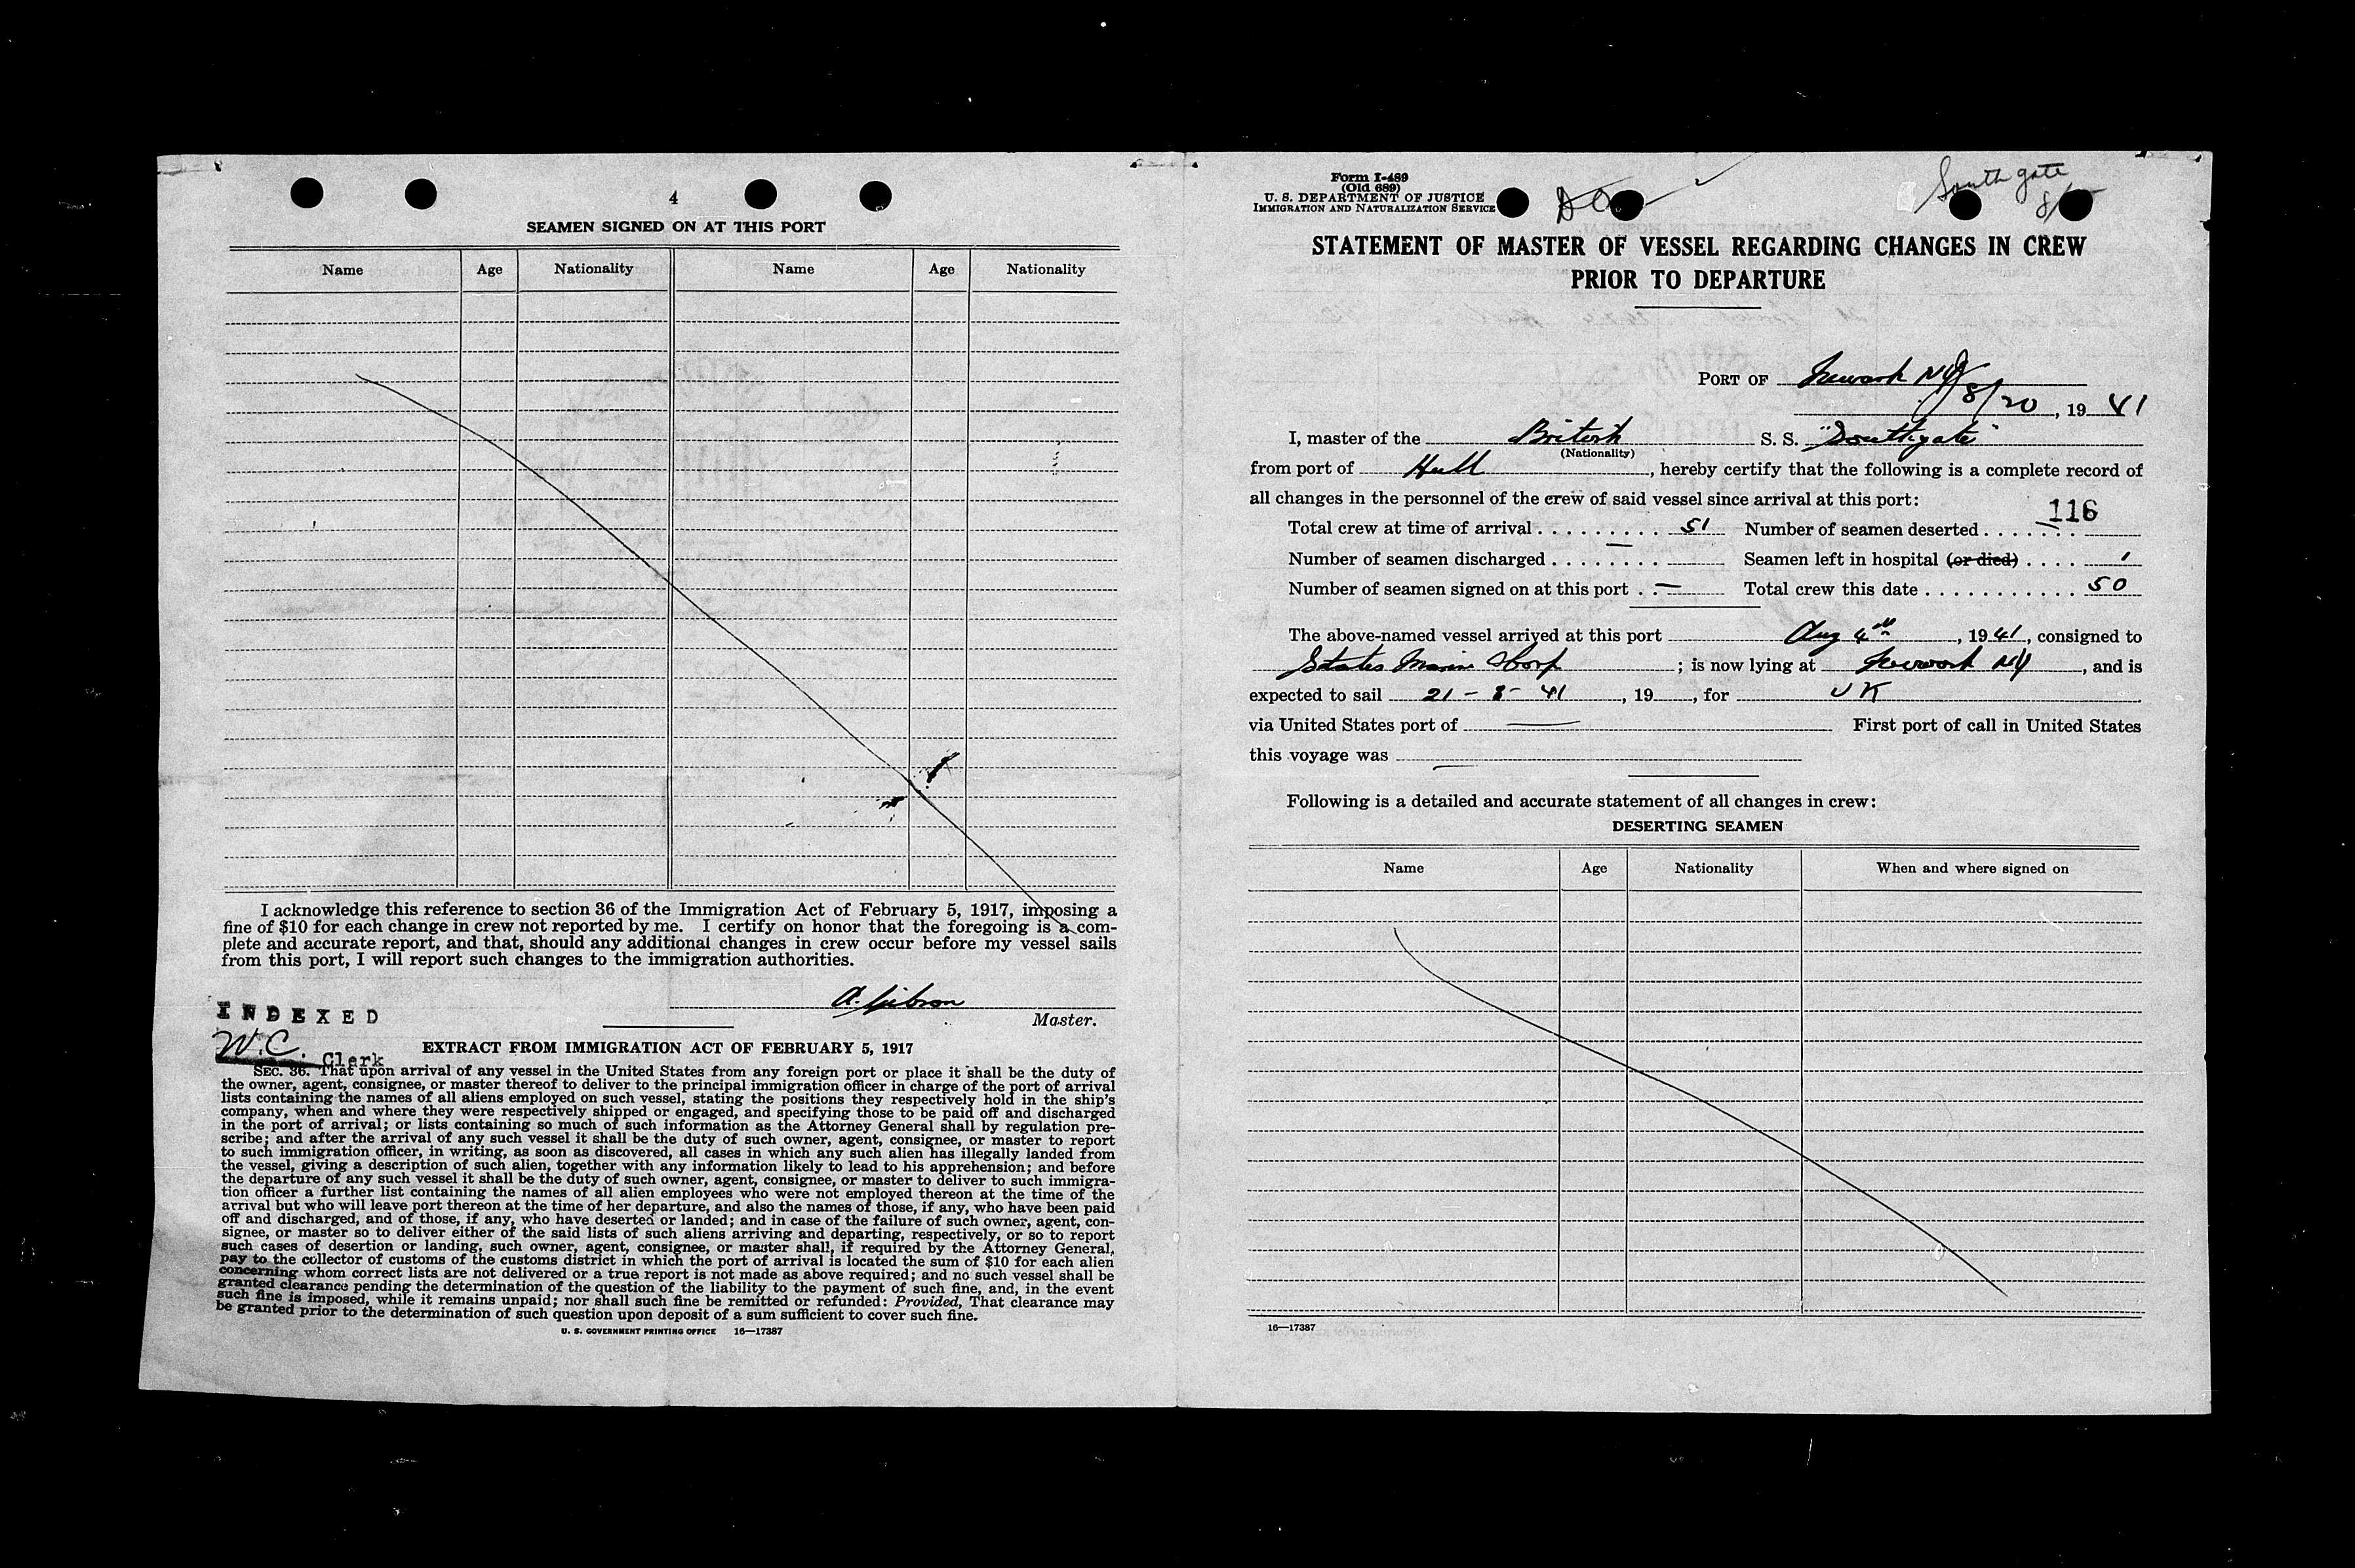 4
SEAMEN SIGNED ON AT THIS PORT
Name Age Nationality Name Age Nationality
I acknowledge this reference to section 36 of the Immigration Act of February 5, 1917, imposing a
fine of $10 for each change in crew not reported by me. I certify on honor that the foregoing is a com-
plete and accurate report, and that, should any additional changes in crew occur before my vessel sails
from this port, I will report such changes to the immigration authorities.
A. Gibson
Master.
INDEXED
W.C. Clerk
EXTRACT FROM IMMIGRATION ACT OF FEBRUARY 5, 1917
SEC. 36. That upon arrival of any vessel in the United States from any foreign port or place it shall be the duty of
the owner, agent, consignee, or master thereof to deliver to the principal immigration officer in charge of the port of arrival
lists containing the names of all aliens employed on such vessel, stating the positions they respectively hold in the ship's
company, when and where they were respectively shipped or engaged, and specifying those to be paid off and discharged
in the port of arrival; or lists containing so much of such information as the Attorney General shall by regulation pre-
scribe; and after the arrival of any such vessel it shall be the duty of such owner, agent, consignee, or master to report
to such immigration officer, in writing, as soon as discovered, all cases in which any such alien has illegally landed from
the vessel, giving a description of such alien, together with any information likely to lead to his apprehension; and before
the departure of any such vessel it shall be the duty of such owner, agent, consignee, or master to deliver to such immigra-
tion officer a further list containing the names of all alien employees who were not employed thereon at the time of the
arrival but who will leave port thereon at the time of her departure, and also the names of those, if any, who have been paid
off and discharged, and of those, if any, who have deserted or landed; and in case of the failure of such owner, agent, con-
signee, or master so to deliver either of the said lists of such aliens arriving and departing, respectively, or so to report
such cases of desertion or landing, such owner, agent, consignee, or master shall, if required by the Attorney General,
pay to the collector of customs of the customs district in which the port of arrival is located the sum of $10 for each alien
concerning whom correct lists are not delivered or a true report is not made as above required; and no such vessel shall be
granted clearance pending the determination of the question of the liability to the payment of such fine, and, in the event
such fine is imposed, while it remains unpaid; nor shall such fine be remitted or refunded: Provided, That clearance may
be granted prior to the determination of such question upon deposit of a sum sufficient to cover such fine.
U. S. GOVERNMENT PRINTING OFFICE 16—17387
Form I-489
(Old 689)
U. S. DEPARTMENT OF JUSTICE
IMMIGRATION AND NATURALIZATION SERVICE
Southgate
STATEMENT OF MASTER OF VESSEL REGARDING CHANGES IN CREW
PRIOR TO DEPARTURE
PORT OF Newark NJ
8/20, 19 41
I, master of the British S. S. "Southgate"
(Nationality)
from port of Hull, hereby certify that the following is a complete record of
all changes in the personnel of the crew of said vessel since arrival at this port:
116
Total crew at time of arrival 51 Number of seamen deserted —
Number of seamen discharged — Seamen left in hospital (or died) 1
Number of seamen signed on at this port — Total crew this date 50
The above-named vessel arrived at this port Aug 4th, 1941, consigned to
States Marine Corp; is now lying at Newark NJ, and is
expected to sail 21-8-41, 19, for UK
via United States port of — First port of call in United States
this voyage was —
Following is a detailed and accurate statement of all changes in crew:
DESERTING SEAMEN
Name Age Nationality When and where signed on
16—17387